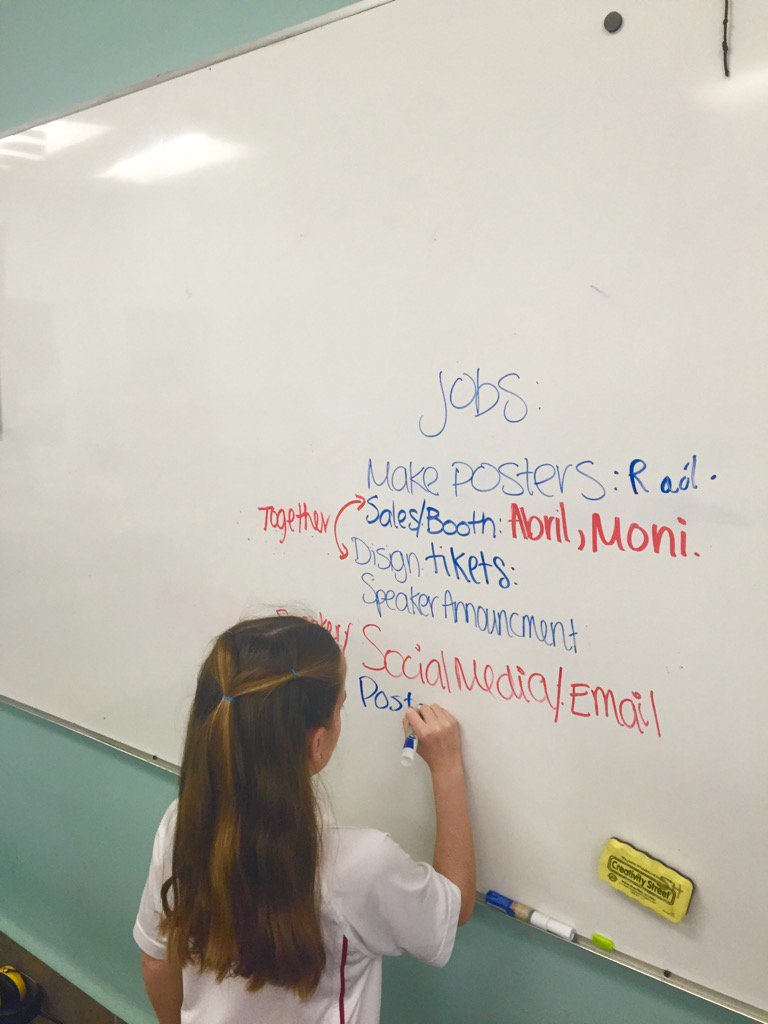 Jobs:
Make posters: Raúl.
Together
Sales/Booth: Abril, Moni.
Disign tikets:
Speaker Announcment
Social Media/Email
Post
Creativity Street